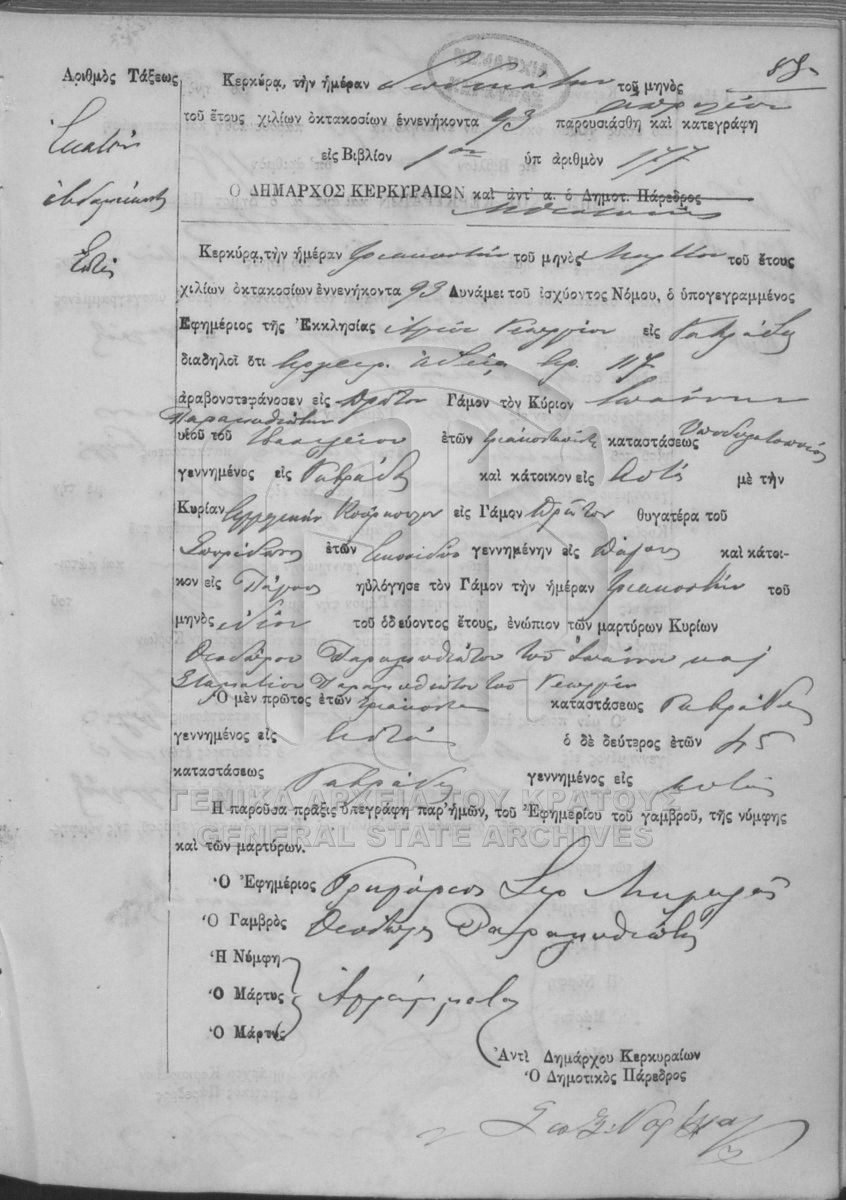 Ἀριθμὸς Τάξεως
Ἑκατὸν
ἑβδομήκοντα
Ἑπτὰ
Κερκύρα, τὴν ἡμέραν δωδεκάτην τοῦ μηνὸς
Ἀπριλίου
τοῦ ἔτους χιλίων ὀκτακοσίων ἐννενήκοντα 93 παρουσιάσθη καὶ κατεγράφη
εἰς Βιβλίον 1ον ὑπ ἀριθμὸν 177
Ο ΔΗΜΑΡΧΟΣ ΚΕΡΚΥΡΑΙΩΝ καὶ ἀντ' α. ὁ Δημοτ. Πάρεδρος
Κερκύρα, τὴν ἡμέραν τριακοστὴν τοῦ μηνὸς Μαρτίου τοῦ ἔτους
χιλίων ὀκτακοσίων ἐννενήκοντα 93 Δυνάμει τοῦ ἰσχύοντος Νόμου, ὁ ὑπογεγραμμένος
Ἐφημέριος τῆς Ἐκκλησίας Ἁγίου Γεωργίου εἰς Γαβράδες
διαδηλοῖ ὅτι ἀρχιερ. ἀδείᾳ ἀρ. 117
ἀραβονστεφάνοσεν εἰς πρῶτον Γάμον τὸν Κύριον Ἰωάννην
Παραμυθιώτην
υἱοῦ τοῦ Βασιλείου ἐτῶν καταστάσεως
γεννημένος εἰς Γαβράδες καὶ κάτοικον εἰς αὐτὸ μὲ τὴν
Κυρίαν Ἀγγελικὴν εἰς Γάμον πρῶτον θυγατέρα τοῦ
Σπυρίδωνος ἐτῶν εἰκοσιδύο γεννημένην εἰς Πάγους καὶ κάτοι-
κον εἰς Πάγους ηὐλόγησε τὸν Γάμον τὴν ἡμέραν τριακοστὴν τοῦ
μηνὸς ἰδίου τοῦ ὁδεύοντος ἔτους, ἐνώπιον τῶν μαρτύρων Κυρίων
Θεοδώρου Παραμυθιώτου τοῦ Ἰωάννου καὶ
Σταματίου Παραμυθιώτου τοῦ Γεωργίου
Ὁ μὲν πρῶτος ἐτῶν τριάκοντα καταστάσεως Γαβράδες
γεννημένος εἰς αὐτὸ ὁ δὲ δεύτερος ἐτῶν 45
καταστάσεως Γαβράδες γεννημένος εἰς αὐτὸ
ΓΕΝΙΚΑ ΑΡΧΕΙΑ ΤΟΥ ΚΡΑΤΟΥΣ
Η παροῦσα πρᾶξις ὑπεγράφη παρ' ἡμῶν, τοῦ Ἐφημερίου τοῦ γαμβροῦ, τῆς νύμφης
GENERAL STATE ARCHIVES
καὶ τῶν μαρτύρων.
Ὁ Ἐφημέριος Γρηγόριος
Ὁ Γαμβρὸς Θεόδωρος Παραμυθιώτης
Ἡ Νύμφη
Ὁ Μάρτυς Ἀγράμματοι
Ὁ Μάρτυς
Ἀντὶ Δημάρχου Κερκυραίων
Ὁ Δημοτικὸς Πάρεδρος